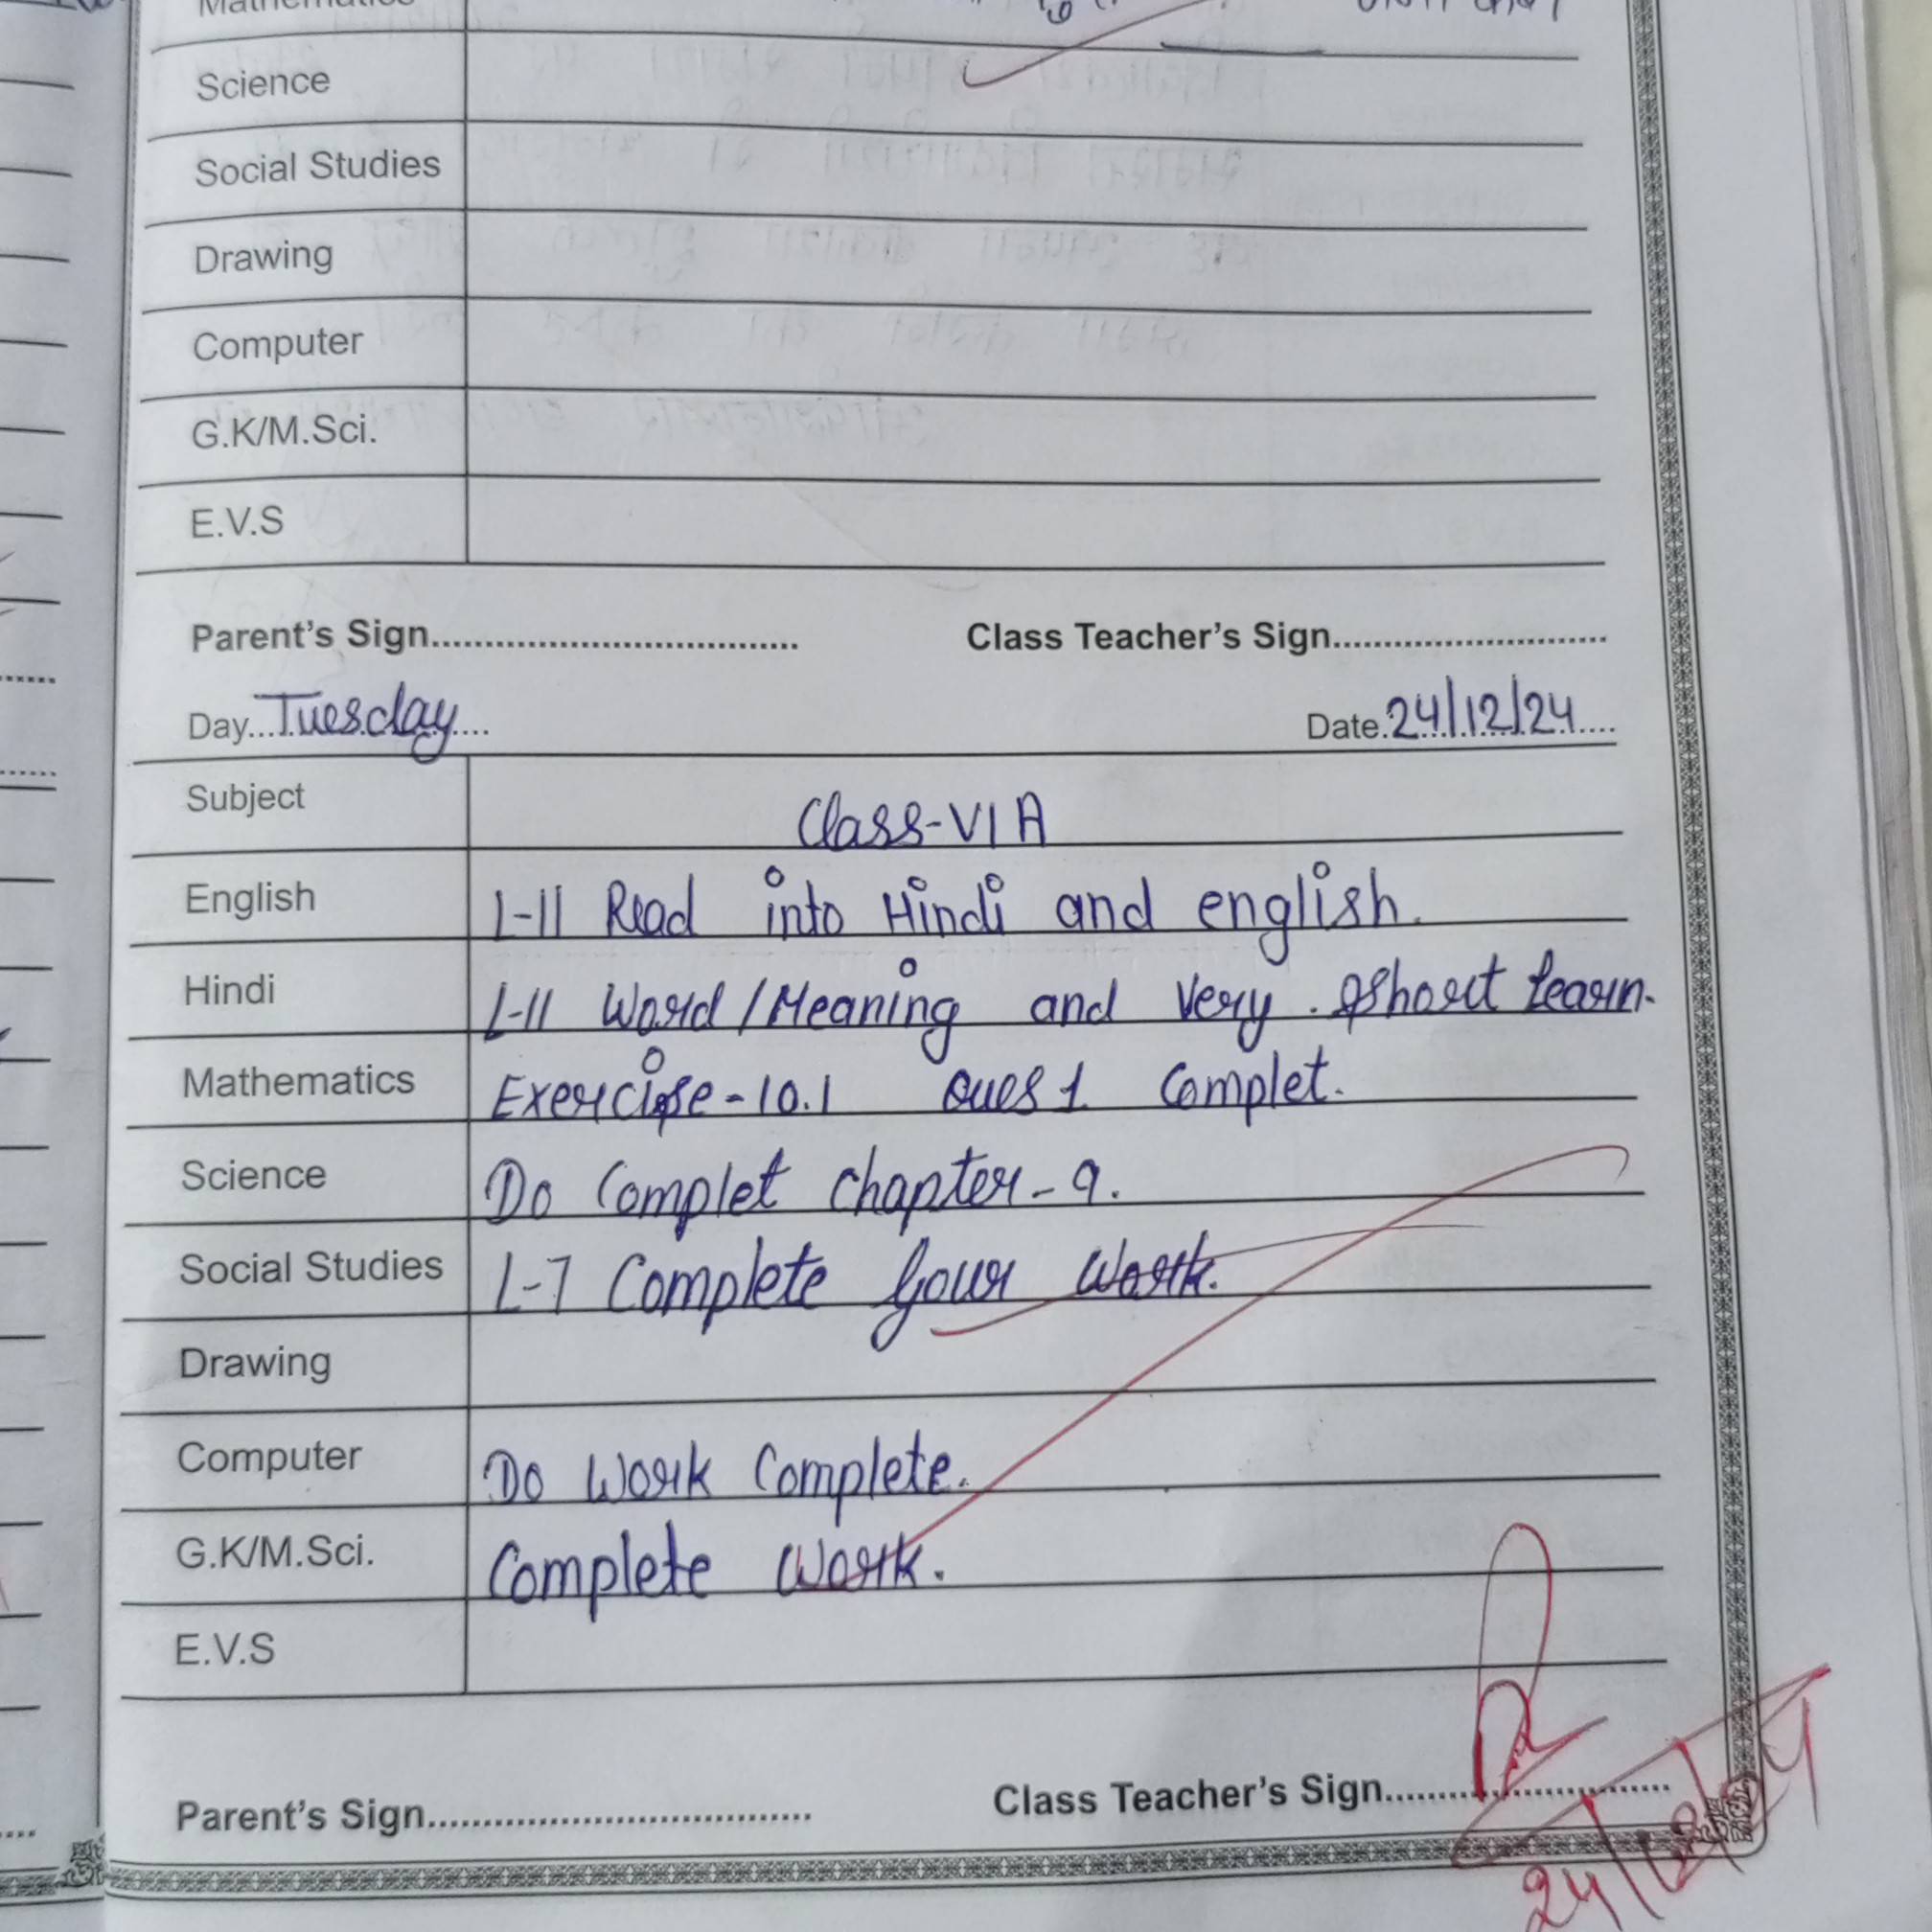 Mathematics
Science
Social Studies
Drawing
Computer
G.K/M.Sci.
E.V.S
Parent's Sign.................................. Class Teacher's Sign.........................
Day...Tuesday.... Date.24/12/24....
Subject Class-VI A
English L-11 Read into Hindi and english.
Hindi L-11 Word/Meaning and Very short learn.
Mathematics Exercise-10.1 Ques 1 Complet.
Science Do Complet chapter-9.
Social Studies L-7 Complete your work.
Drawing
Computer Do Work Complete.
G.K/M.Sci. Complete work.
E.V.S
Parent's Sign.................................. Class Teacher's Sign.........................
24/12/24